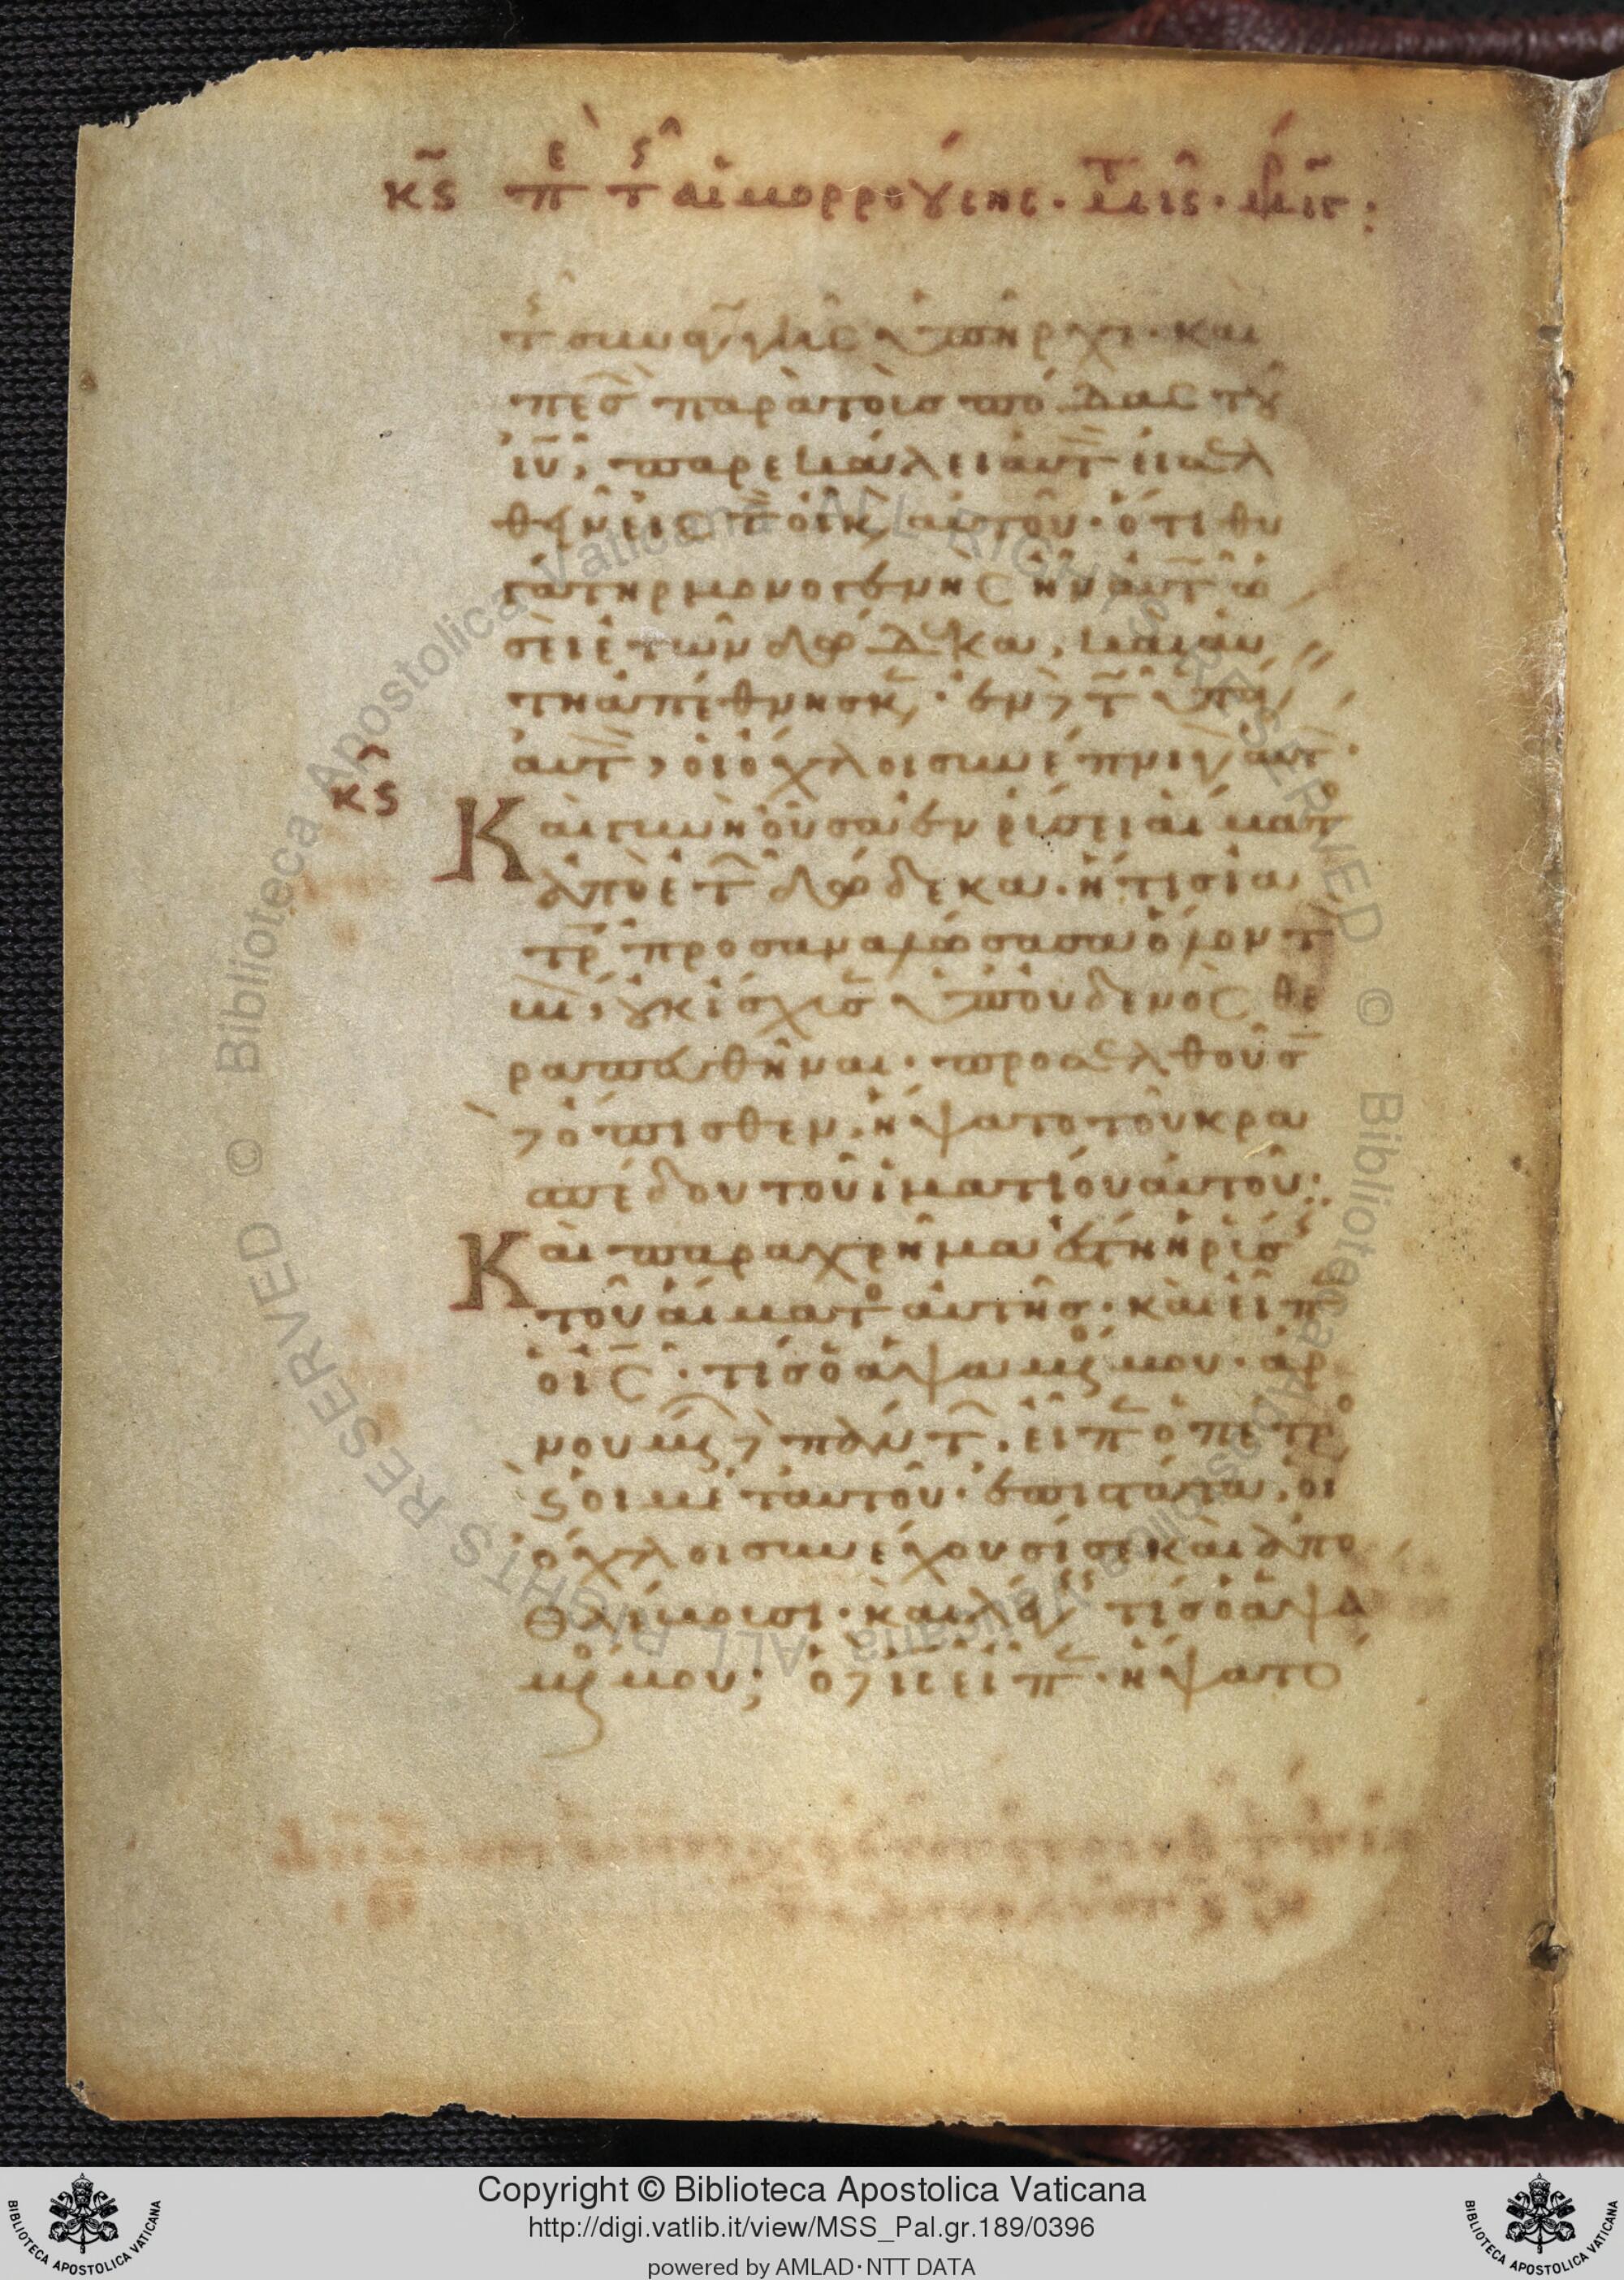 κς πε τς αἱμορροούσης
τς συναγωγῆς ὑπῆρχε· και
πες παρὰ τοὺς πόδας τοῦ
ιυ, παρεκάλει αὐτ εἰσελ
θεῖν εἰς τ οἶκ αὐτοῦ· ὅτι θυ
γάτηρ μονογενὴς ἦν αὐτῶ ὡ
σεὶ ἐτῶν δώδεκα, καὶ αὐ
τὴ ἀπέθνησκ· ἐν δὲ τ ὑπάγ
αὐτ, οἱ ὄχλοι συνέπνιγ αὐτ·
κς
Καὶ γυνὴ οὖσα ἐν ρύσει αἵματο
ἀπὸ ἐτ δώδεκα· ἥτις ἰα
τρ προσαναλώσασα ὅλον τ
βι, οὐκ ἴσχυσ ὑπ' οὐδενὸς θε
ραπευθῆναι· προσελθοῦσ
ὄπισθεν, ἥψατο τοῦ κρα
σπέδου τοῦ ἱματίου αὐτοῦ:
Καὶ παραχρῆμα ἔστη ἡ ρύσ
τοῦ αἵματο αὐτῆς· καὶ εἶπ
ὁ ις· τίς ὁ ἁψάμενός μου· ἀρ
νουμεν δὲ πάντ, εἶπ ὁ πέτρο
κ οἱ μετ' αὐτοῦ· ἐπιστάτα, οἱ
ὄχλοι συνέχουσί σε καὶ ἀπο
θλίβουσι· καὶ λέγεις τίς ὁ ἁψά
μενός μου; ὁ δὲ ις εἶπ· ἥψατό
Copyright © Biblioteca Apostolica Vaticana
http://digi.vatlib.it/view/MSS_Pal.gr.189/0396
powered by AMLAD·NTT DATA
BIBLIOTECA APOSTOLICA VATICANA
BIBLIOTECA APOSTOLICA VATICANA
© Biblioteca Apostolica Vaticana ALL RIGHTS RESERVED © Biblioteca Apostolica Vaticana ALL RIGHTS RESERVED